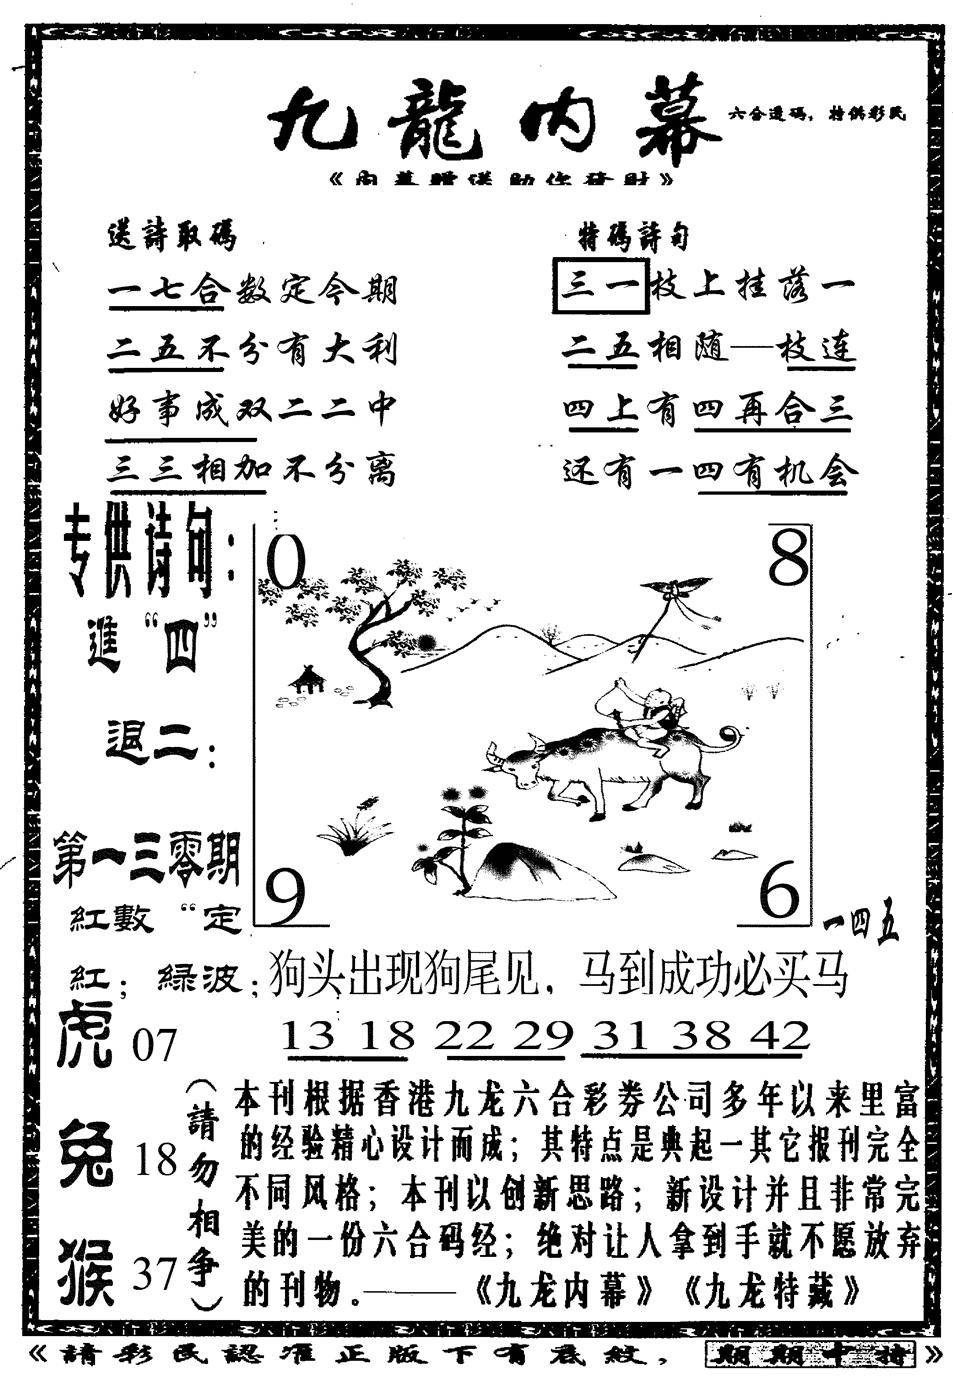 九龍内幕
六合透码，特供彩民
《内幕赠送助你發財》
送詩取碼
一七合数定今期
二五不分有大利
好事成双二二中
三三相加不分离
特碼詩句
三一枝上挂落一
二五相随一枝连
四上有四再合三
还有一四有机会
专供诗句：
進“四”
退二：
第一三零期
紅數“定
紅；綠波；
0
8
9
6
一四五
狗头出现狗尾见，马到成功必买马
13 18 22 29 31 38 42
虎 07
兔 18
猴 37
（請勿相争）
本刊根据香港九龙六合彩券公司多年以来里富
的经验精心设计而成；其特点是典起一其它报刊完全
不同风格；本刊以创新思路；新设计并且非常完
美的一份六合码经；绝对让人拿到手就不愿放弃
的刊物。———《九龙内幕》《九龙特藏》
《請彩民認准正版下有底紋，期期中特》